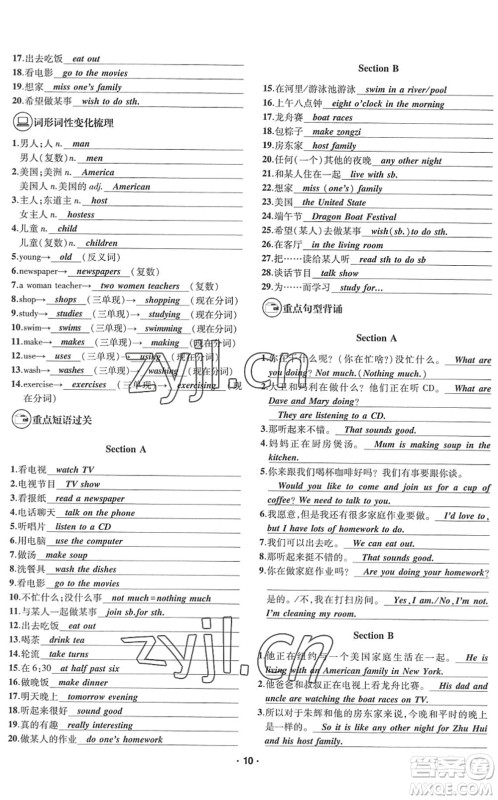 17.出去吃饭 eat out
18.看电影 go to the movies
19.想家 miss one's family
20.希望做某事 wish to do sth.
词形词性变化梳理
1.男人;人 n. man
男人(复数) n. men
2.美国;美洲 n. America
美国人 n.美国的 adj. American
3.主人;东道主 n. host
女主人 n. hostess
4.儿童 n. child
儿童(复数) n. children
5.young→ old (反义词)
6.newspaper→ newspapers (复数)
7.a woman teacher→ two women teachers (复数)
8.shop→ shops (三单现)→ shopping (现在分词)
9.study→ studies (三单现)→ studying (现在分词)
10.swim→ swims (三单现)→ swimming (现在分词)
11.make→ makes (三单现)→ making (现在分词)
12.use→ uses (三单现)→ using (现在分词)
13.wash→ washes (三单现)→ washing (现在分词)
14.exercise→ exercises (三单现)→ exercising (现
在分词)
重点短语过关
Section A
1.看电视 watch TV
2.电视节目 TV show
3.看报纸 read a newspaper
4.电话聊天 talk on the phone
5.听唱片 listen to a CD
6.用电脑 use the computer
7.做汤 make soup
8.洗餐具 wash the dishes
10.不忙什么;没什么事 not much=nothing much
11.与某人一起做某事 join sb.for sth.
12.出去吃饭 eat out
13.喝茶 drink tea
14.轮流 take turns
15.在6:30 at half past six
16.做晚饭 make dinner
17.明天晚上 tomorrow night
18.那好吧 I'd love to
19.真的有趣 really interesting
20.做某人的作业 do one's homework
Section B
15.在河里/游泳池游泳 swim in a river/pool
16.上午八点钟 eight o'clock in the morning
17.龙舟赛 boat races
18.包粽子 make zongzi
19.房东家 host family
20.任何(一个)其他的夜晚 any other night
21.和某人住在一起 live with sb.
22.想家 miss (one's) family
23.美国 the United State
24.端午节 Dragon Boat Festival
25.希望(某人)去做某事 wish(sb.) to do sth.
26.在客厅 in the living room
27.把……读给某人听 read sth to sb.
28.谈话节目 talk show
29.为……而学习 study for…
重点句型背诵
Section A
1.你在干什么呢?(你在忙啥?)没忙什么。 What are
you doing? Not much.(Nothing much.)
2.大卫和玛利在做什么?他们正在听CD。 What are
Dave and Mary doing?
They are listening to a CD.
3.那听起来不错。 That sounds good.
4.妈妈正在厨房煲汤。 Mum is making soup in the
kitchen.
5.你来跟我们喝杯咖啡好吗?我们需要跟你谈谈。
Would you like to come and join us for a cup of
coffee? We need to talk to you.
6.我愿意,但是我有许多家庭作业要做。 I'd love to,
but I have lots of homework to do.
7.我们可以出去吃。 We can eat out.
8.那听起来挺不错的。 That sounds good.
9.你在做你的家庭作业吗? Are you doing your homework?
是的,我在做。/不,我在打扫房间。 Yes,I am./No,I'm not.
I'm cleaning my room.
Section B
1.他正在纽约与一个美国家庭生活在一起。 He is
living with an American family in New York.
2.他的爸爸和叔叔正在电视上看龙舟比赛。 His dad and
uncle are watching the boat races on TV.
3.所以对于朱辉和他的房东家来说,今晚和平时的晚上
是一样的。 So it is like any other night for Zhu Hui
and his host family.
· 10 ·
zyjl.cn
zyjl.cn